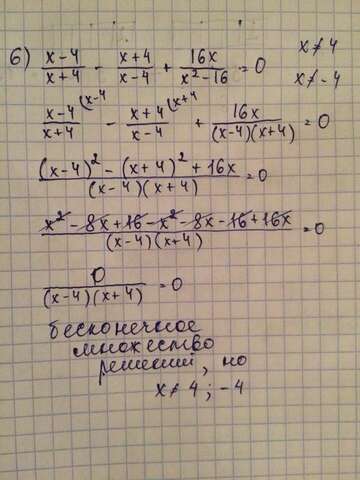 6) (x-4)/(x+4) - (x+4)/(x-4) + 16x/(x²-16) = 0    x ≠ 4
x ≠ -4
(x-4)/(x+4) (x-4 - (x+4)/(x-4) (x+4 + 16x/((x-4)(x+4)) = 0
((x-4)² - (x+4)² + 16x)/((x-4)(x+4)) = 0
(x² - 8x + 16 - x² - 8x - 16 + 16x)/((x-4)(x+4)) = 0
0/((x-4)(x+4)) = 0
бесконечное
множество
решений, но
x ≠ 4 ; -4